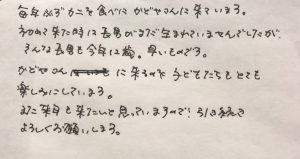 毎年必ずカニを食べにかどやさんに来ています。
初めて来た時は長男がまだ生まれていませんでしたが、
そんな長男も今年は 。早いものです。
かどやさん に来るのを子どもたちもとても
楽しみにしています。
また来年も来たいと思っていますので、引き続き
よろしくお願いします。